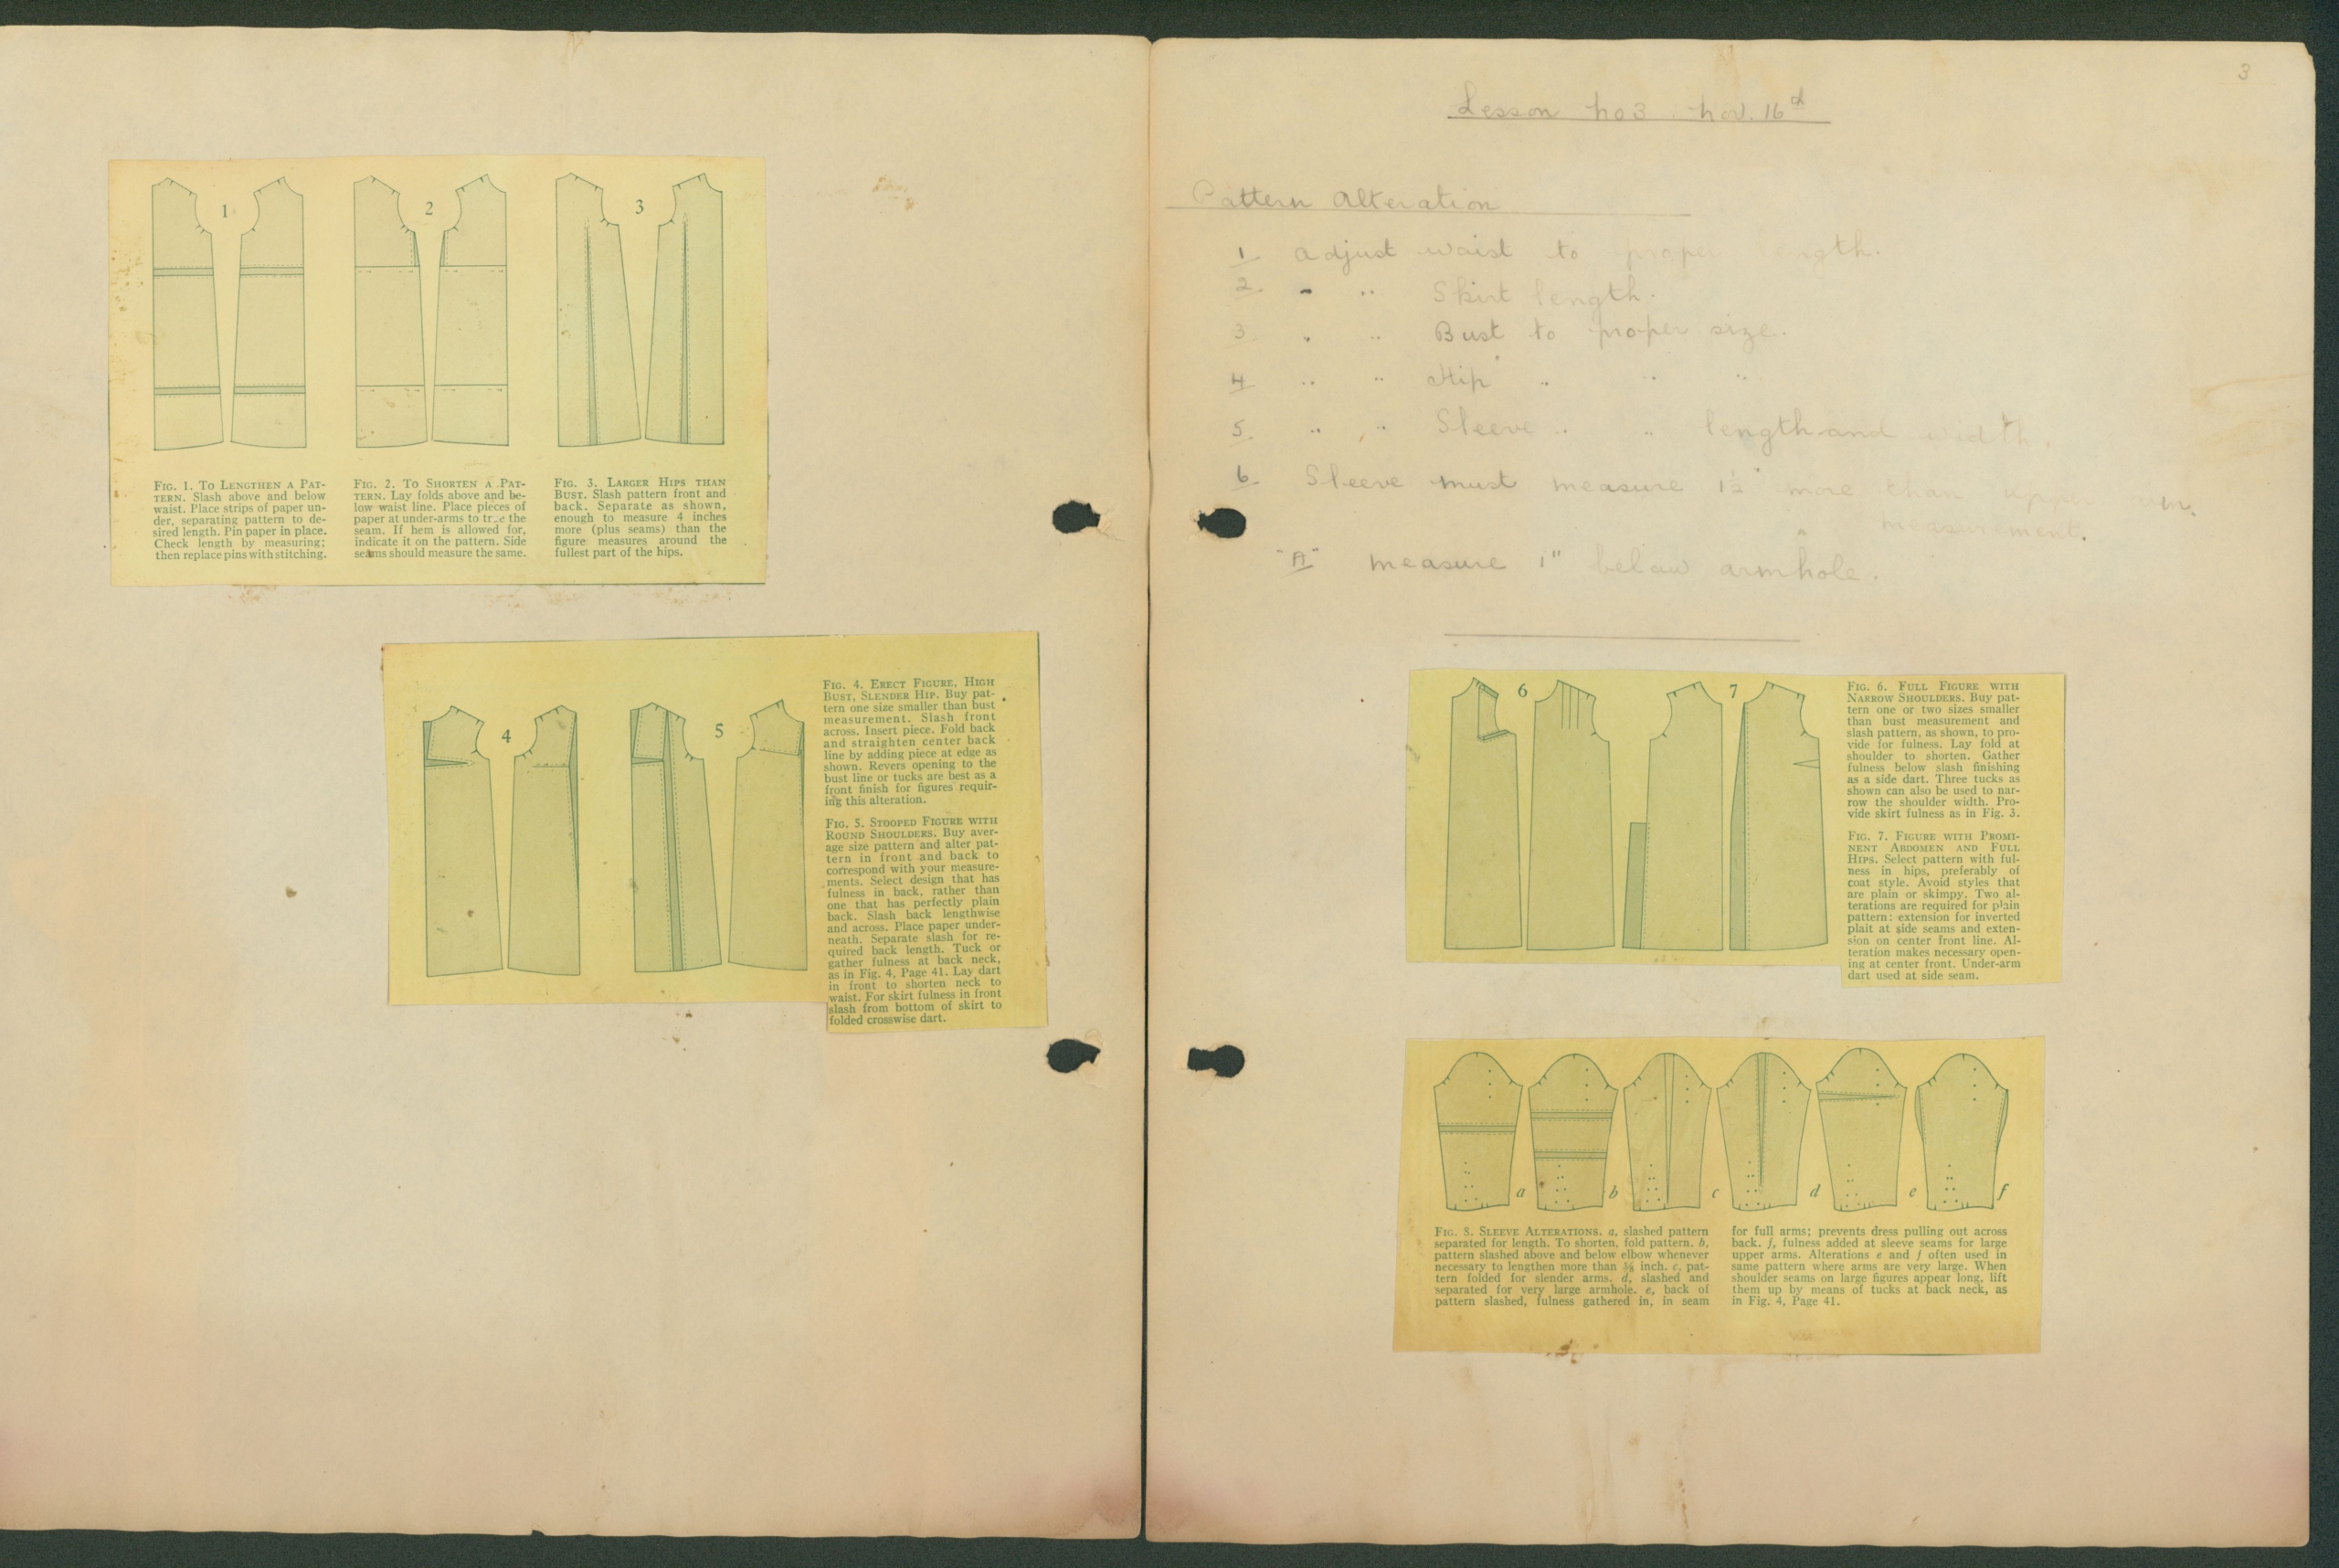 1
2
3
FIG. 1. TO LENGTHEN A PAT-
TERN. Slash above and below
waist. Place strips of paper un-
der, separating pattern to de-
sired length. Pin paper in place.
Check length by measuring;
then replace pins with stitching.
FIG. 2. TO SHORTEN A PAT-
TERN. Lay folds above and be-
low waist line. Place pieces of
paper at under-arms to the
seam. If hem is allowed for,
indicate it on the pattern. Side
seams should measure the same.
FIG. 3. LARGER HIPS THAN
BUST. Slash pattern front and
back. Separate as shown,
enough to measure 4 inches
more (plus seams) than the
figure measures around the
fullest part of the hips.
4
5
FIG. 4. ERECT FIGURE, HIGH
BUST, SLENDER HIP. Buy pat-
tern one size smaller than bust
measurement. Slash front
across. Insert piece. Fold back
and straighten center back
line by adding piece at edge as
shown. Revers opening to the
bust line or tucks are best as a
front finish for figures requir-
ing this alteration.
FIG. 5. STOOPED FIGURE WITH
ROUND SHOULDERS. Buy aver-
age size pattern and alter pat-
tern in front and back to
correspond with your measure-
ments. Select design that has
fulness in back, rather than
one that has perfectly plain
back. Slash back lengthwise
and across. Place paper under-
neath. Separate slash for re-
quired back length. Tuck or
gather fulness at back neck,
as in Fig. 4, Page 41. Lay dart
in front to shorten neck to
waist. For skirt fulness in front
slash from bottom of skirt to
folded crosswise dart.
3
Lesson no 3 nov. 16 d
Pattern Alteration
1 adjust waist to proper length.
2 " " Skirt length.
3 " " Bust to proper size.
4 " " Hip " " "
5 " " Sleeve " " length and width.
6 Sleeve must measure more than upper arm
measurement.
"A" measure 1" below armhole.
6
7
FIG. 6. FULL FIGURE WITH
NARROW SHOULDERS. Buy pat-
tern one or two sizes smaller
than bust measurement and
slash pattern, as shown, to pro-
vide for fulness. Lay fold at
shoulder to shorten. Gather
fulness below slash finishing
as a side dart. Three tucks as
shown can also be used to nar-
row the shoulder width. Pro-
vide skirt fulness as in Fig. 3.
FIG. 7. FIGURE WITH PROMI-
NENT ABDOMEN AND FULL
HIPS. Select pattern with ful-
ness in hips, preferably of
coat style. Avoid styles that
are plain or skimpy. Two al-
terations are required for plain
pattern: extension for inverted
plait at side seams and exten-
sion on center front line. Al-
teration makes necessary open-
ing at center front. Under-arm
dart used at side seam.
a
b
c
d
e
f
FIG. 8. SLEEVE ALTERATIONS. a, slashed pattern
separated for length. To shorten, fold pattern. b,
pattern slashed above and below elbow whenever
necessary to lengthen more than inch. c, pat-
tern folded for slender arms. d, slashed and
separated for very large armhole. e, back of
pattern slashed, fulness gathered in, in seam
for full arms; prevents dress pulling out across
back. f, fulness added at sleeve seams for large
upper arms. Alterations e and f often used in
same pattern where arms are very large. When
shoulder seams on large figures appear long, lift
them up by means of tucks at back neck, as
in Fig. 4, Page 41.